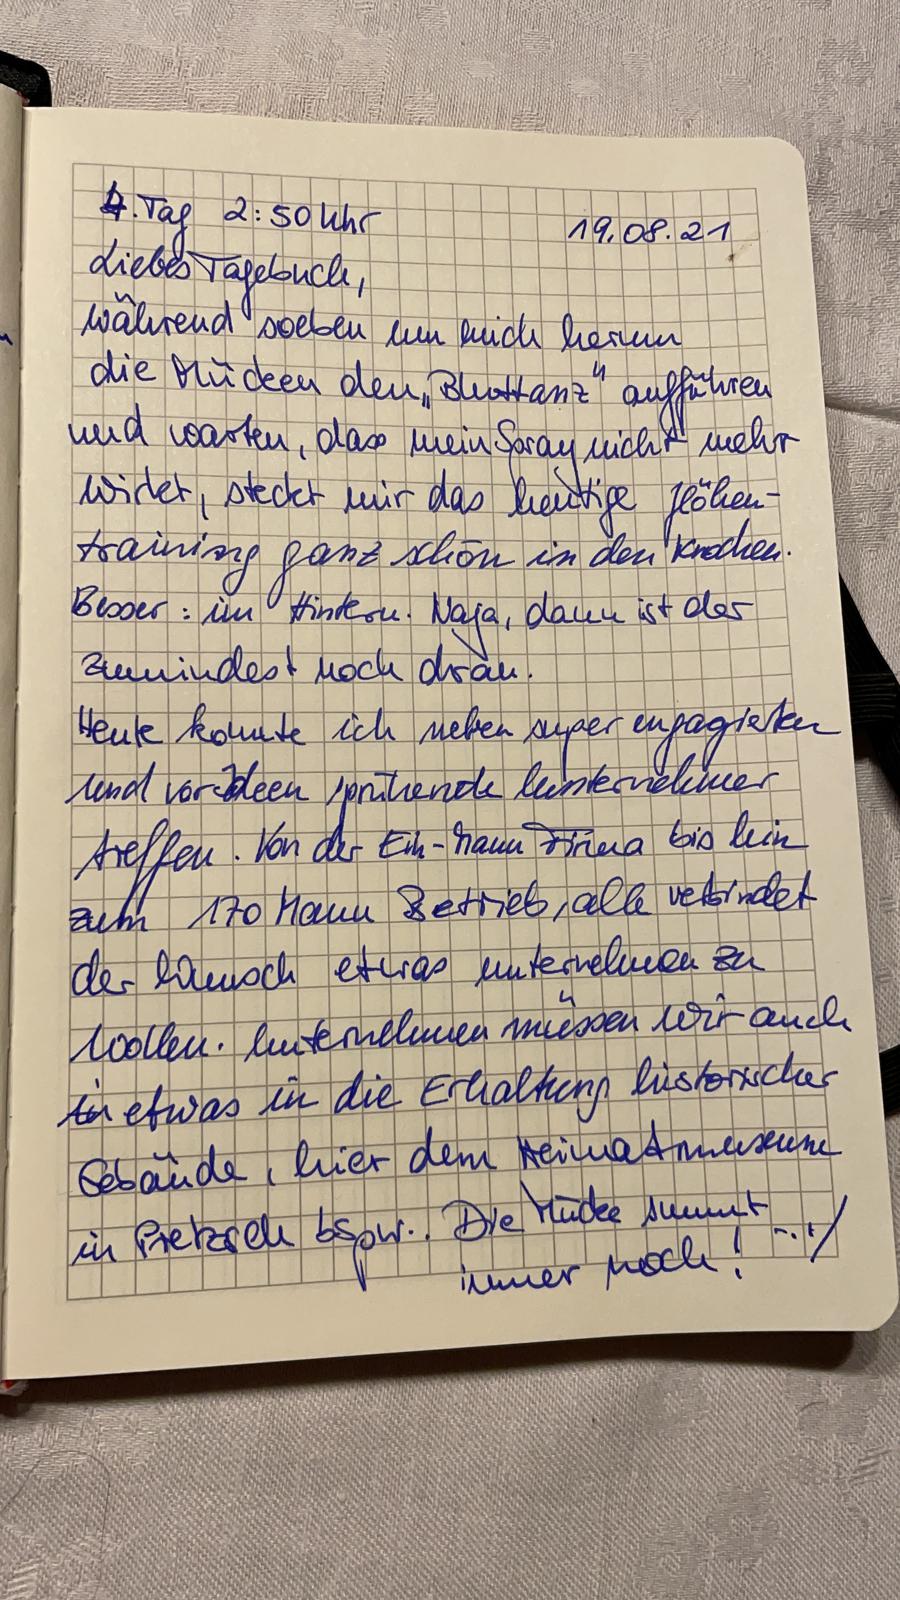 4. Tag 2:50 Uhr 19.08.21
Liebes Tagebuch,
während soeben um mich herum
die Mücken den „Bluttanz“ aufführen
und warten, dass mein Spray nicht mehr
wirket, steckt mir das heutige Höhen-
training ganz schön in den Knochen.
Besser: im Hintern. Naja, dann ist der
zumindest noch dran.
Heute konnte ich neben super engagierten
und vor Ideen sprühende Unternehmer
treffen. Von der Ein-Mann Firma bis hin
zum 170 Mann Betrieb, alle verbindet
der Wunsch etwas unternehmen zu
wollen. Unternehmen müssen wir auch
etwas in die Erhaltung historischer
Gebäude, hier dem Heimatmuseum
in Pretzsch bspw.. Die Mücke summt
immer noch! -.-/